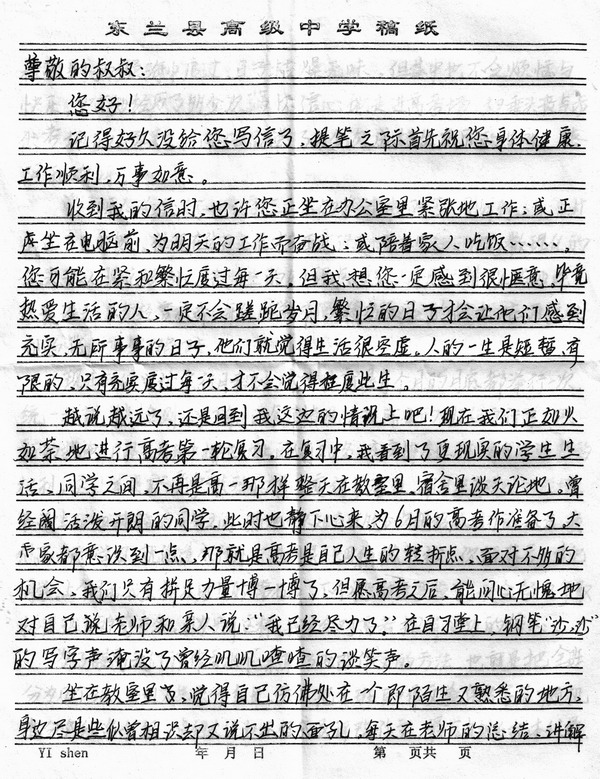 东兰县高级中学稿纸
尊敬的叔叔：
您好！
记得好久没给您写信了，提笔之际首先祝您身体健康，
工作顺利，万事如意。
收到我的信时，也许您正坐在办公室里紧张地工作；或正
坐在电脑前，为明天的工作而奋战；或陪着家人吃饭……，
您可能在紧和繁忙度过每一天，但我想您一定感到很惬意，毕竟
热爱生活的人，一定不会蹉跎岁月，繁忙的日子才会让他们感到
充实，无所事事的日子，他们就觉得生活很空虚。人的一生是短暂，有
限的，只有充实度过每一天，才不会觉得枉度此生。
越说越远了，还是回到我这边的情况上吧！现在我们正如火
如荼地进行高考第一轮复习。在复习中，我看到了更现实的学生生
活，同学之间，不再是高一那样整天在教室里、宿舍里谈天论地。曾
经阔活泼开朗的同学，此时也静下心来，为6月的高考作准备了，大
家都意识到一点，那就是高考是自己人生的转折点，面对不多的
机会，我们只有拼足力量博一博了，但愿高考之后，能问心无愧地
对自己说老师和亲人说：“我已经尽力了”。在自习堂上，钢笔“沙，沙”
的写字声淹没了曾经叽叽喳喳的谈笑声。
坐在教室里，觉得自己仿佛处在一个即陌生又熟悉的地方，
身边尽是些似曾相识却又说不出的面孔，每天在老师的总结、讲解
YI shen 年 月 日 第 页共 页